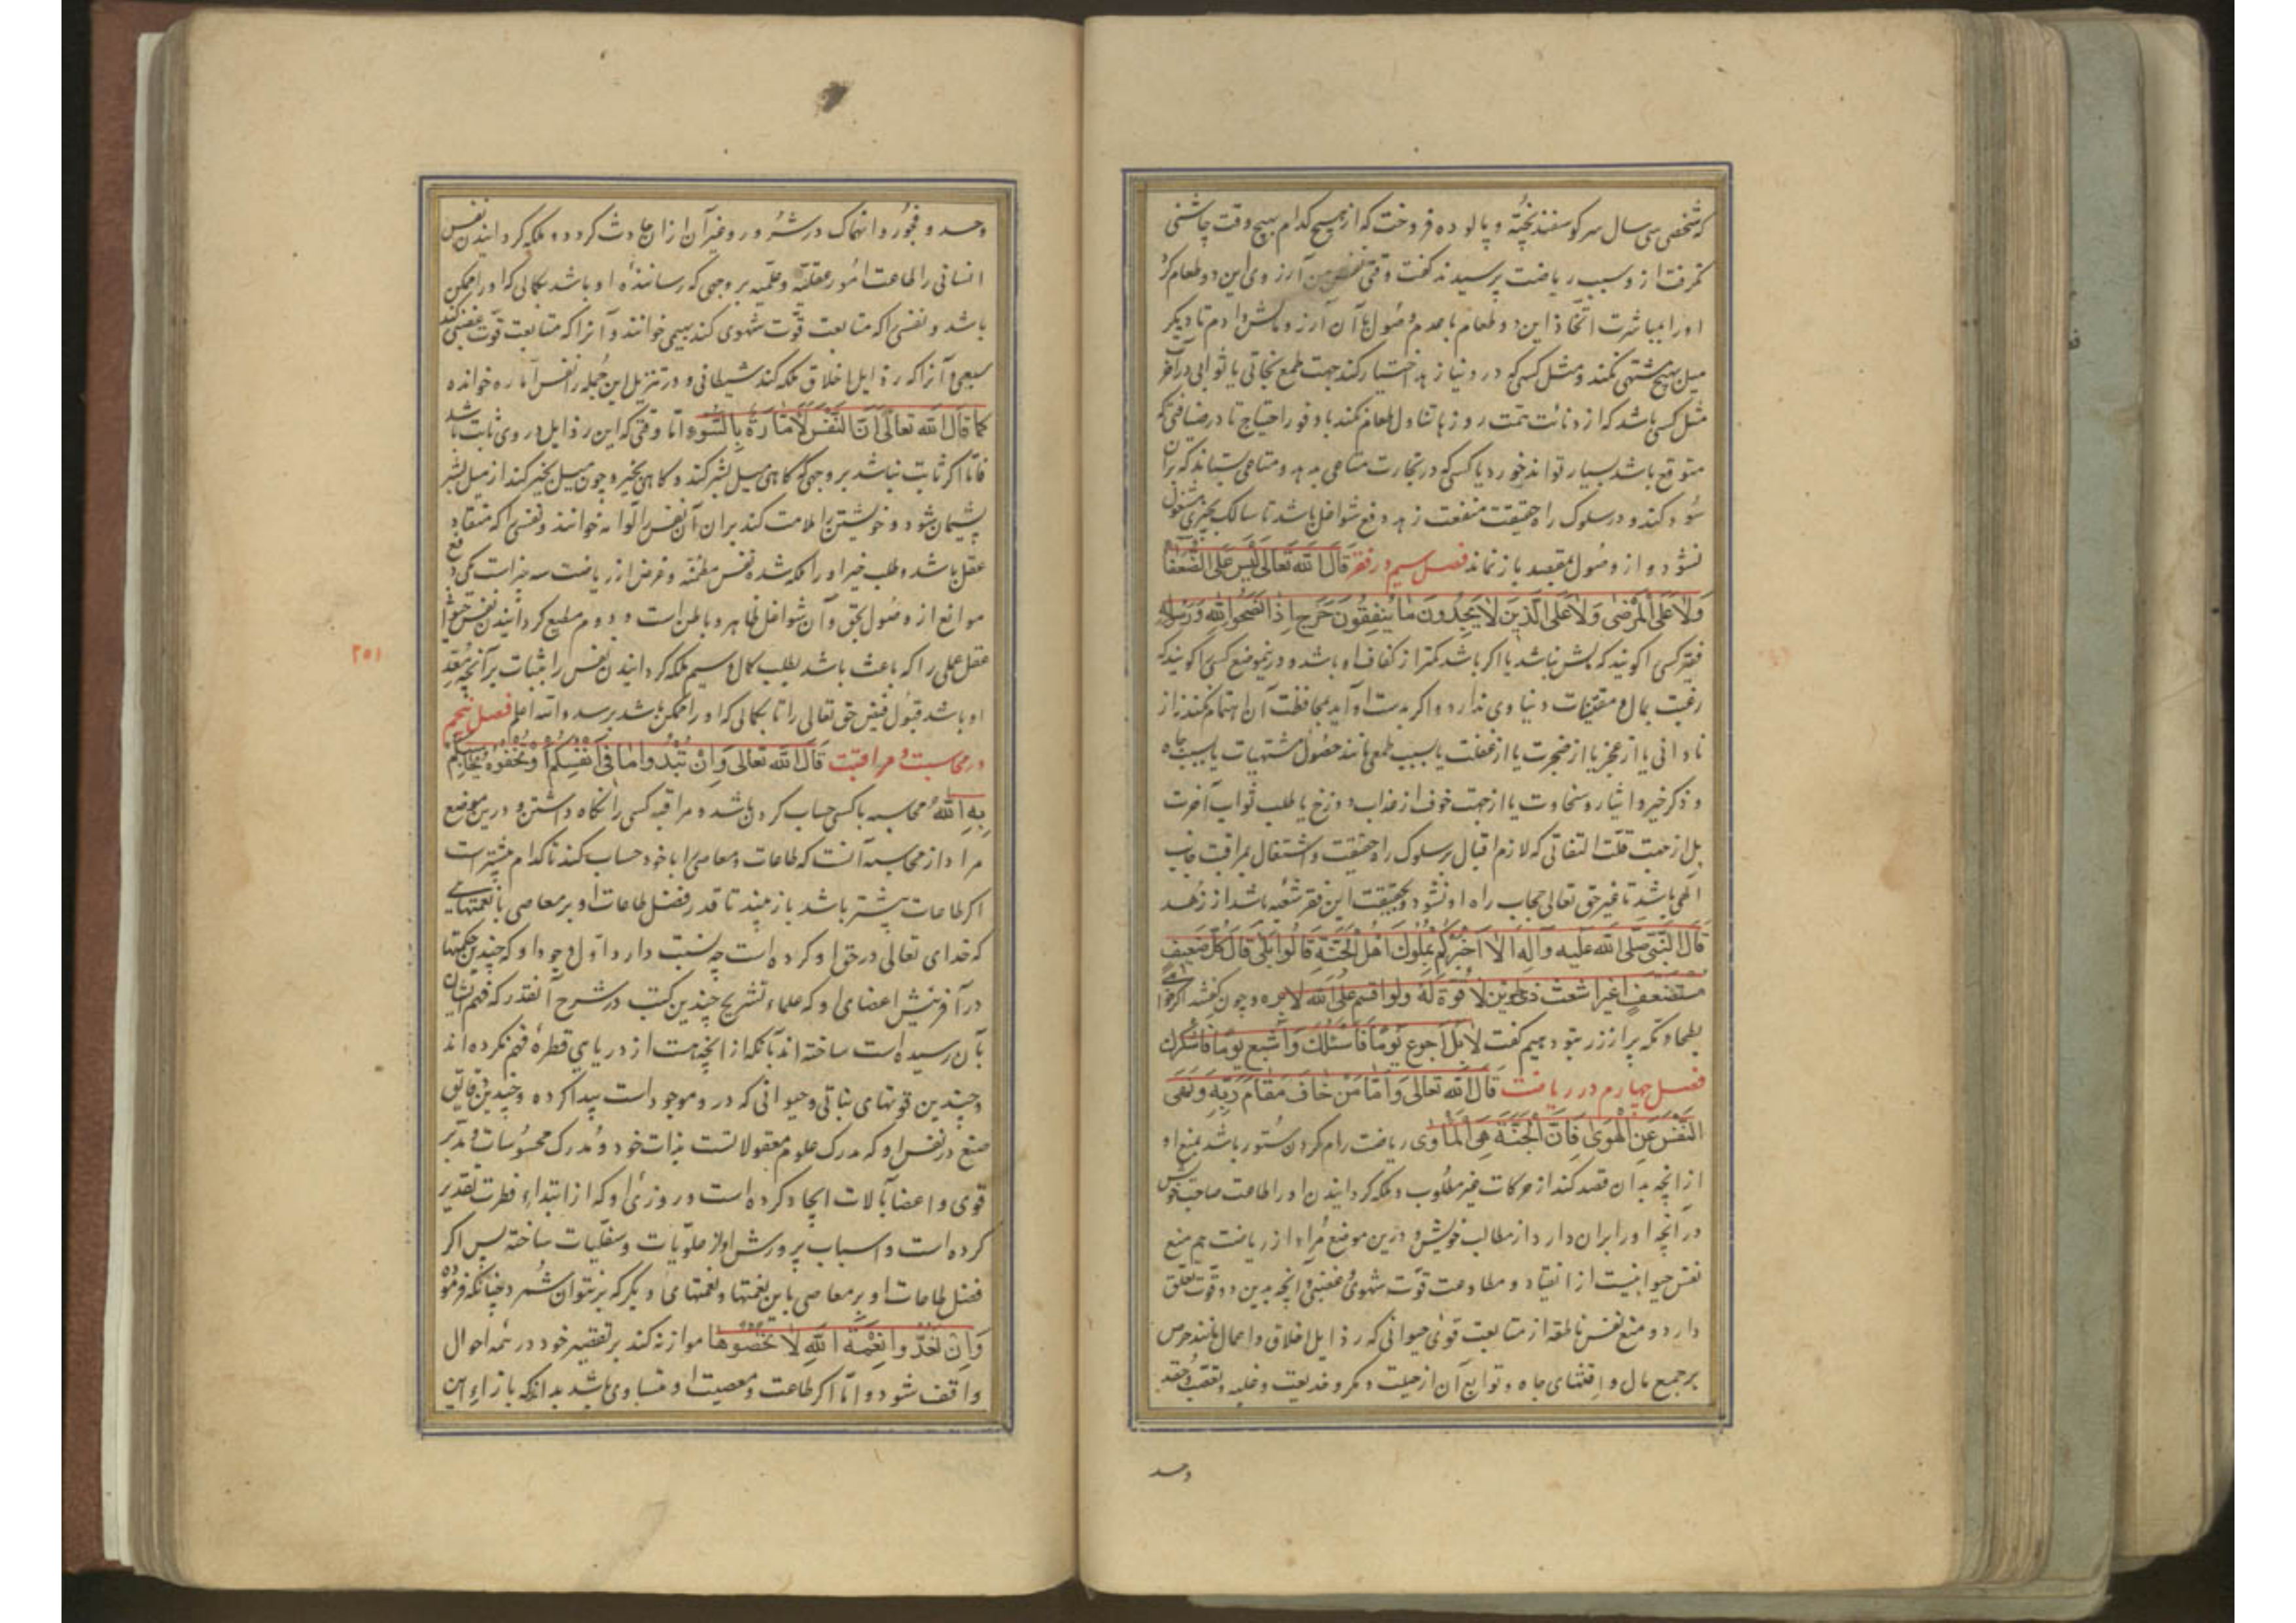 که شخصی سی سال سر کوسفند پخته و پالوده فروخت که از هیچ کدام هیچ وقت چاشنی
نکرفت از و سبب ریاضت پرسیدند کفت وقتی نفس من آرزوی این دو طعام کرد
او را بمباشرت اتخاذ این دو طعام با عدم وصول با آن آرزو مالش دادم تا دیکر
میل بهیچ مشتهی نکند و مثل کسی که در دنیا زهد اختیار کند جهت طمع نجاتی یا ثوابی در آخرت
مثل کسی باشد که از دنائت همت روزها تناول طعام نکند با وفور احتیاج تا در ضیافتی که
متوقع باشد بسیار تواند خورد یا کسی که در تجارت متاعی بدهد و متاعی بستاند که بران
سود کند و در سلوک راه حقیقت منفعت زهد رفع شواغل باشد تا سالک بچیزی مشغول
نشود و از وصول بمقصد باز نماند فصل سیم در فقر قال الله تعالی لیس علی الضعفاء
ولا علی المرضی ولا علی الذین لا یجدون ما ینفقون حرج اذا نصحوا لله ورسوله
فقیر کسی را کویند که مالش نباشد یا اکر باشد کمتر از کفاف او باشد و درینموضع کسی را کویند که
رغبت بمال و مقتنیات دنیاوی ندارد و اکر بدست آید بمحافظت آن اهتمام نکند نه از
نادانی یا از عجز یا از ضجرت یا از غفلت یا بسبب طمعی مانند حصول مشتهیات یا بسبب جاه
و ذکر خیر و ایثار و سخاوت یا از جهت خوف از عذاب دوزخ یا طلب ثواب آخرت
بل از جهت قلت التفاتی که لازم اقبال بر سلوک راه حقیقت و اشتغال بمراقبت جانب
الهی باشد تا غیر حق تعالی حجاب راه او نشود و بحقیقت این فقر شعبه باشد از زهد
قال النبی صلی الله علیه و آله الا اخبرکم بملوک اهل الجنة قالوا بلی قال کل ضعیف
مستضعف اغبر اشعث ذی طمرین لا قوة له ولو اقسم علی الله لابره و چون کفتند اکر خواهی
بطحاء مکه پر از زر بتو دهیم کفت لا بل اجوع یوما فاسئلک و اشبع یوما فاشکرک
فصل چهارم در ریاضت قال الله تعالی واما من خاف مقام ربه ونهی
النفس عن الهوی فان الجنة هی الماوی ریاضت رام کردن ستور باشد بمنع او
از انچه بدان قصد کند از حرکات غیر مطلوب و ملکه کردانیدن او را طاعت صاحب خویش
در آنچه او را بران دارد از مطالب خویش و درین موضع مراد از ریاضت هم منع
نفس حیوانیست از انقیاد و مطاوعت قوت شهوی و غضبی و آنچه بدین دو قوت تعلق
دارد و منع نفس ناطقه از متابعت قوی حیوانی که رذایل اخلاق و اعمال مانند حرص
بر جمع مال و اقتنای جاه و توابع آن از حیلت و مکر و خدیعت و غلبه و تعصب و حقد
وحسد
وحسد و فجور و انهماک در شرور و غیر آن ازان حادث کردد و ملکه کردانیدن نفس
انسانی را طاعت امور عقلیه و علمیه بر وجهی که رساننده او باشد بکمالی که او را ممکن
باشد و نفسی را که متابعت قوت شهوی کند بهیمی خوانند و آنرا که متابعت قوت غضبی کند
سبعی و آنرا که رذایل اخلاق ملکه کند شیطانی و در تنزیل این جمله را نفس اماره خوانده
کما قال الله تعالی ان النفس لامارة بالسوء اما وقتی که این رذایل در وی ثابت باشد
فاما اکر ثابت نباشد بر وجهی که کاهی میل بشر کند و کاهی بخیر و چون میل بخیر کند از میل بشر
پشیمان شود و خویشتن را ملامت کند بران آن نفس را لوامه خوانند و نفسی را که منقاد
عقل باشد و طلب خیر او را ملکه شده نفس مطمئنه و غرض از ریاضت سه چیز است یکی رفع
موانع از وصول بحق و آن شواغل ظاهر و باطن است و دوم مطیع کردانیدن نفس حیوانی
عقل عملی را که باعث باشد بطلب کمال و سیم ملکه کردانیدن نفس را بثبات بر آنچه معد
او باشد قبول فیض حق تعالی را تا بکمالی که او را ممکن باشد برسد والله اعلم فصل پنجم
در محاسبت و مراقبت قال الله تعالی وان تبدوا ما فی انفسکم او تخفوه یحاسبکم
به الله محاسبه با کسی حساب کردن باشد و مراقبه کسی را نکاه داشتن و درین موضع
مراد از محاسبه آنست که طاعات و معاصی را با خود حساب کند تا کدام بیشتر است
اکر طاعات بیشتر باشد باز بیند تا قدر فضل طاعات او بر معاصی با نعمتهایی
که خدای تعالی در حق او کرده است چه نسبت دارد اول وجود او که چندین حکمتها
در آفرینش اعضای او که علماء تشریح چندین کتب در شرح آنقدر که فهم ایشان
بآن رسیده است ساخته اند با آنکه از انچه هست از دریایی قطرهٔ فهم نکرده اند
و چندین قوتهای نباتی و حیوانی که در و موجود است پیدا کرده و چندین دقایق
صنع در نفس او که مدرک علوم معقولاتست بذات خود و مدرک محسوسات و مدبر
قوی و اعضا بآلات ایجاد کرده است و روزی او که از ابتداء فطرت تقدیر
کرده است و اسباب پرورش او از علویات و سفلیات ساخته پس اکر
فضل طاعات او بر معاصی با این نعمتها و نعمتهای دیکر که برنتوان شمرد چنانکه فرموده
وان تعدوا نعمة الله لا تحصوها موازنه کند بر تقصیر خود در همه احوال
واقف شود و اما اکر طاعت و معصیت او متساوی باشد بداند که بازاء این
۲۵۱